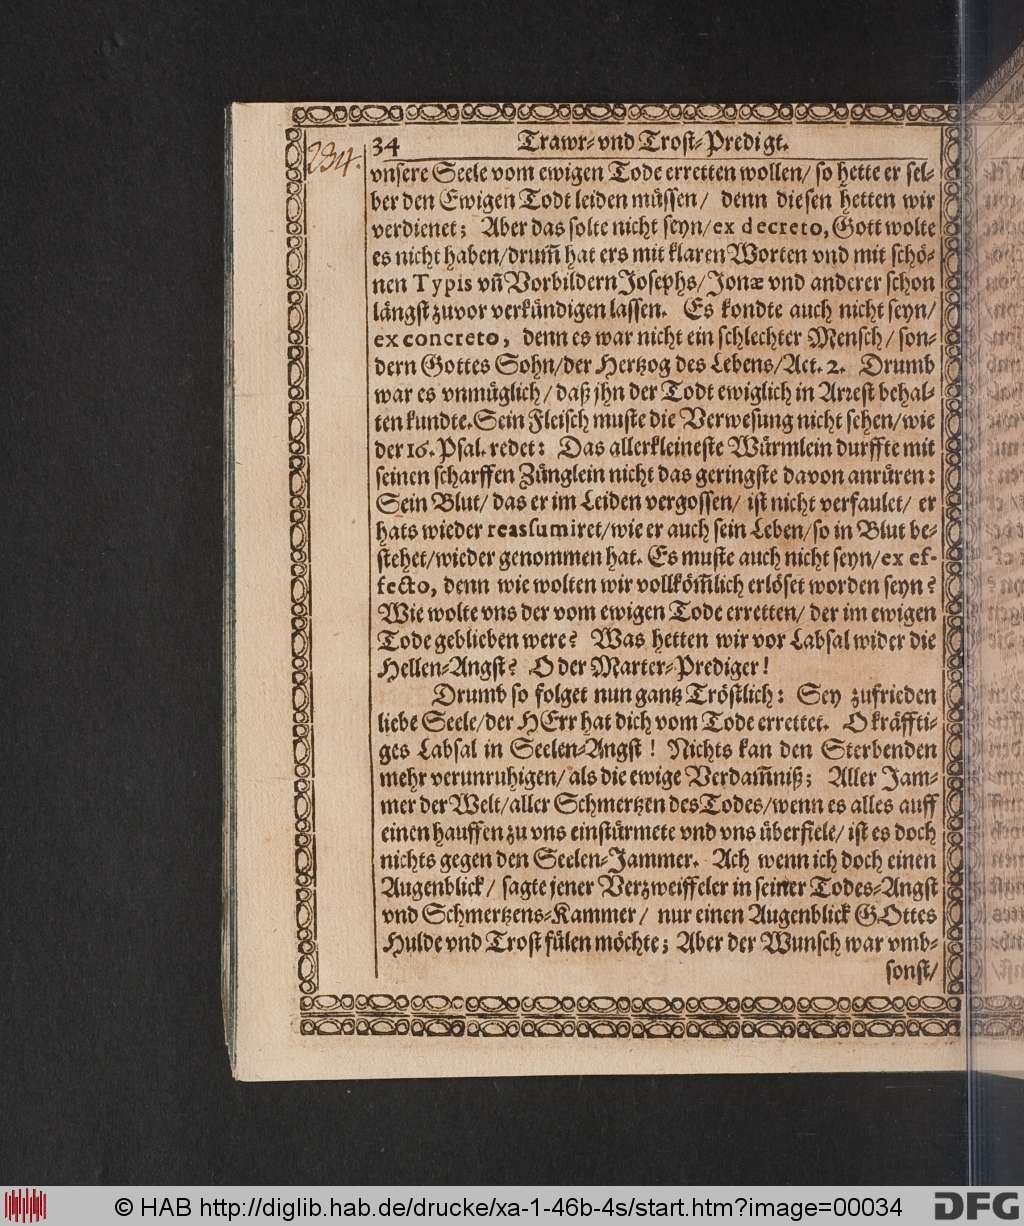 234.
34 Trawr- vnd Trost-Predigt.
vnsere Seele vom ewigen Tode erretten wollen/ so hette er sel-
ber den Ewigen Todt leiden müssen/ denn diesen hetten wir
verdienet; Aber das solte nicht seyn/ ex decreto, Gott wolte
es nicht haben/ drum̃ hat ers mit klaren Worten vnd mit schö-
nen Typis vñ Vorbildern Josephs/ Jonæ vnd anderer schon
längst zuvor verkündigen lassen. Es kondte auch nicht seyn/
ex concreto, denn es war nicht ein schlechter Mensch/ son-
dern Gottes Sohn/ der Hertzog des Lebens/ Act. 2. Drumb
war es vnmüglich/ daß jhn der Todt ewiglich in Arrest behal-
ten kundte. Sein Fleisch muste die Verwesung nicht sehen/ wie
der 16. Psal. redet: Das allerkleineste Würmlein durffte mit
seinen scharffen Zünglein nicht das geringste davon anrüren:
Sein Blut/ das er im Leiden vergossen/ ist nicht verfaulet/ er
hats wieder reassumiret/ wie er auch sein Leben/ so in Blut be-
stehet/ wieder genommen hat. Es muste auch nicht seyn/ ex ef-
fecto, denn wie wolten wir vollköm̃lich erlöset worden seyn?
Wie wolte vns der vom ewigen Tode erretten/ der im ewigen
Tode geblieben were? Was hetten wir vor Labsal wider die
Hellen-Angst? O der Marter-Prediger!
Drumb so folget nun gantz Tröstlich: Sey zufrieden
liebe Seele/ der HErr hat dich vom Tode errettet. O kräffti-
ges Labsal in Seelen-Angst! Nichts kan den Sterbenden
mehr verunruhigen/ als die ewige Verdam̃niß; Aller Jam-
mer der Welt/ aller Schmertzen des Todes/ wenn es alles auff
einen hauffen zu vns einstürmete vnd vns überfiele/ ist es doch
nichts gegen den Seelen-Jammer. Ach wenn ich doch einen
Augenblick/ sagte jener Verzweiffeler in seiner Todes-Angst
vnd Schmertzens-Kammer/ nur einen Augenblick GOttes
Hulde vnd Trost fülen möchte; Aber der Wunsch war vmb-
sonst/
© HAB http://diglib.hab.de/drucke/xa-1-46b-4s/start.htm?image=00034
DFG